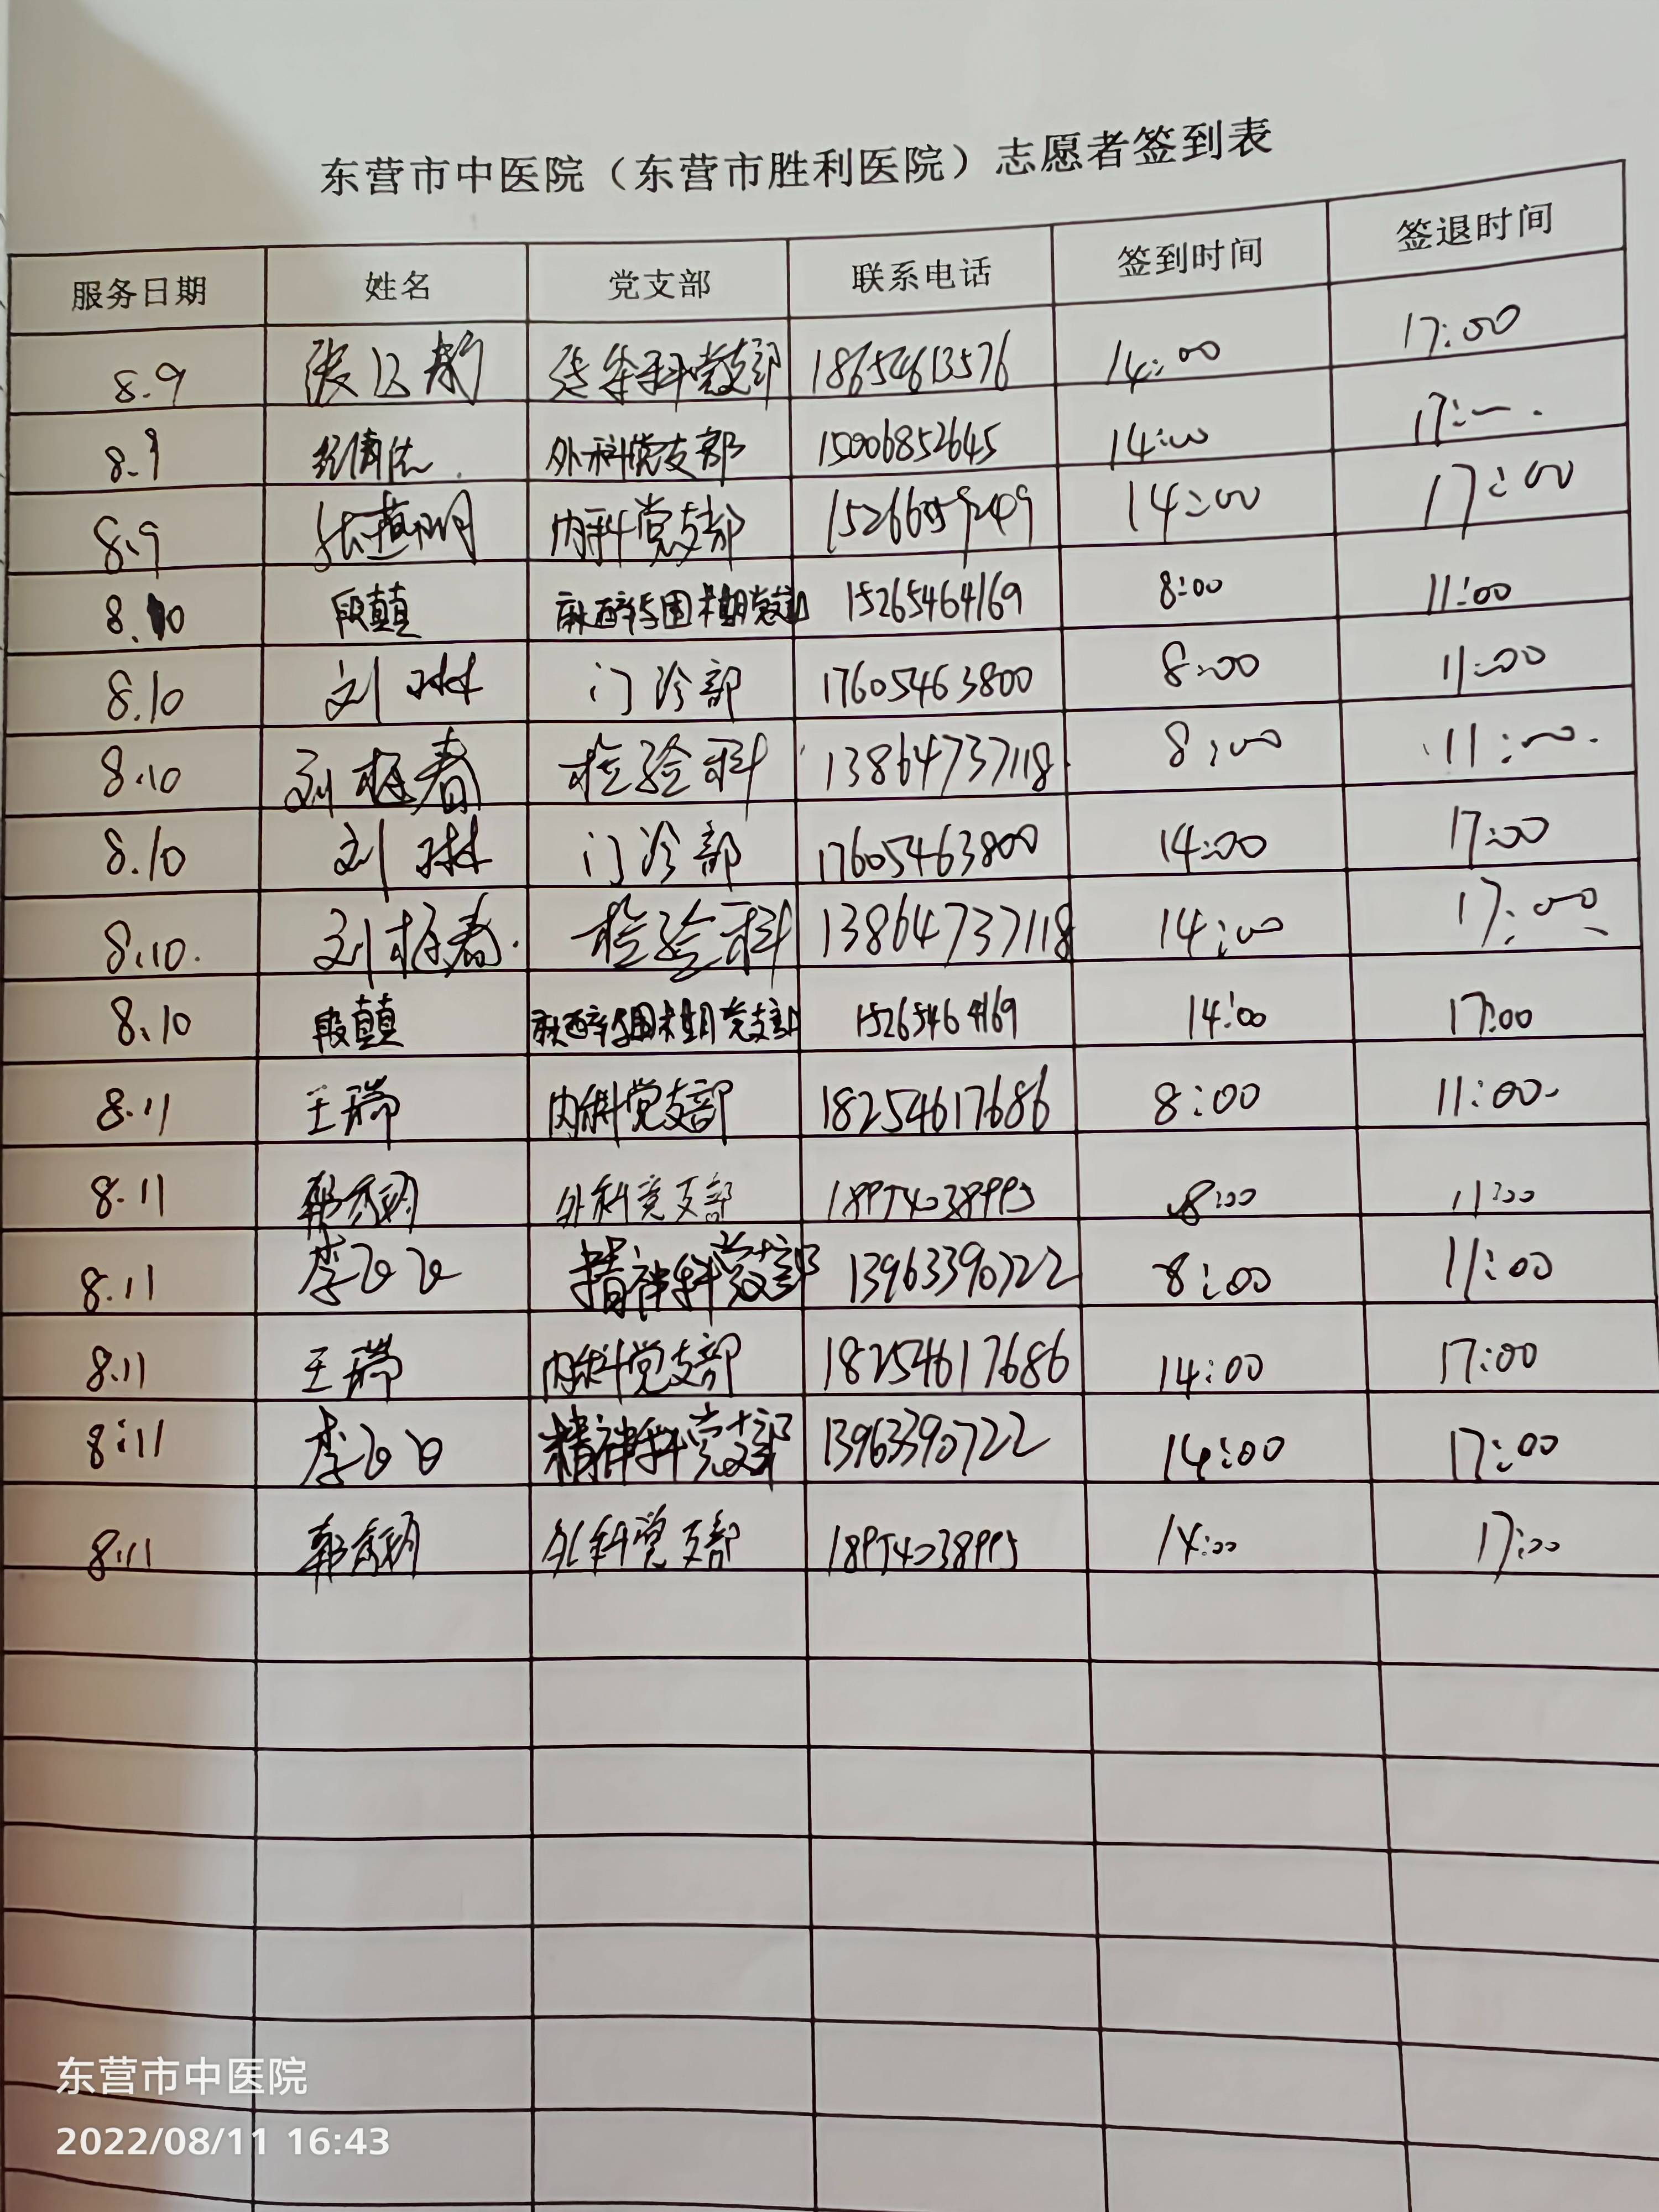 东营市中医院（东营市胜利医院）志愿者签到表
服务日期 姓名 党支部 联系电话 签到时间 签退时间
8.9 张 党支部 18654613576 14:00 17:00
8.9 外科党支部 15006852645 14:00 17:00
8.9 张 内科党支部 14:00 17:00
8.10 段颠 麻醉与围术期党支部 15265464169 8:00 11:00
8.10 刘琳 门诊部 17605463800 8:00 11:00
8.10 刘 春 检验科 13864737118 8:00 11:00
8.10 刘琳 门诊部 17605463800 14:00 17:00
8.10. 刘 春. 检验科 13864737118 14:00 17:00
8.10 段颠 麻醉与围术期党支部 15265464169 14:00 17:00
8.11 王瑞 内科党支部 18254617686 8:00 11:00
8.11 郭 外科党支部 8:00 11:00
8.11 李 精神科党支部 13963390722 8:00 11:00
8.11 王瑞 内科党支部 18254617686 14:00 17:00
8:11 李 精神科党支部 13963390722 14:00 17:00
8.11 郭 外科党支部 14:00 17:00
东营市中医院
2022/08/11 16:43